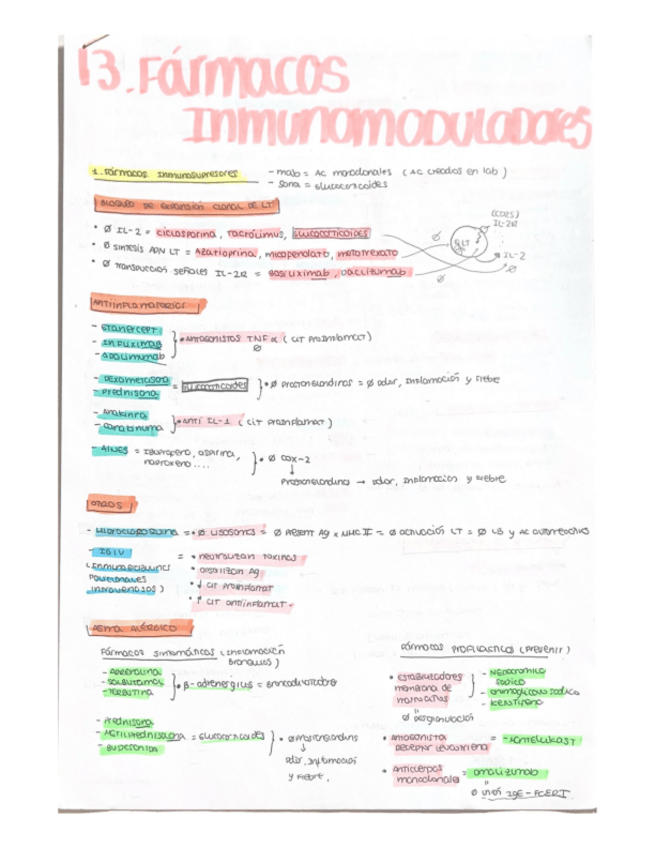 13. Fármacos
Inmunomoduladores
1. Fármacos Inmunosupresores
- mab = AC monoclonales (AC creados en lab)
- sona = glucocorticoides
Bloqueo de expansión clonal de LT
• Ø IL-2 = ciclosporina, tacrolimus, glucocorticoides
• Ø síntesis ADN LT = Azatioprina, micofenolato, metotrexato
• Ø transducción señales IL-2R = Basiliximab, daclizumab
IL-2R
Ø
LT
IL-2
Ø
Ø
Antiinflamatorios
- Etanercept
- Infliximab
- Adalimumab
• Antagonistas TNF α (cit proinflamat)
Ø
- Dexametasona
- Prednisona
= glucocorticoides
• Ø prostanglandinas = Ø dolor, inflamación y fiebre
- Anakinra
• Anti IL-1 (cit proinflamat)
- AINES = Ibuprofeno, aspirina,
naproxeno....
• Ø COX-2
↓
Prostanglandina → dolor, inflamación y fiebre
Otros
- Hidrocloroquina = • Ø lisosomas = Ø Present Ag x MHC II = Ø activación LT = Ø LB y AC autorreactivos
- IGIV
(Inmunoglobulinas
Policlonales
intravenosas)
= • neutralizan toxinas
• opsonizan Ag
• ↓ cit proinflamat
• ↑ cit antiinflamat.
Asma alérgico
Fármacos sintomáticos (inflamación
bronquios)
- Adrenalina
- Salbutamol
= broncodilatadores
- Prednisona
- Metilprednisolona = glucocorticoides
• Ø Prostanglandins
↓
dolor, inflamación
y fiebre.
Fármacos profilácticos (prevenir)
• Estabilizadores
membrana de
mastocitos
"
Ø desgranulación
- Nedocromilo
sódico
- cromoglicato sódico
- ketotifeno
• Antagonista
receptor leucotrieno
= - Montelukast
• Anticuerpos
monoclonales
= omalizumab
"
Ø unión IgE - FcERI